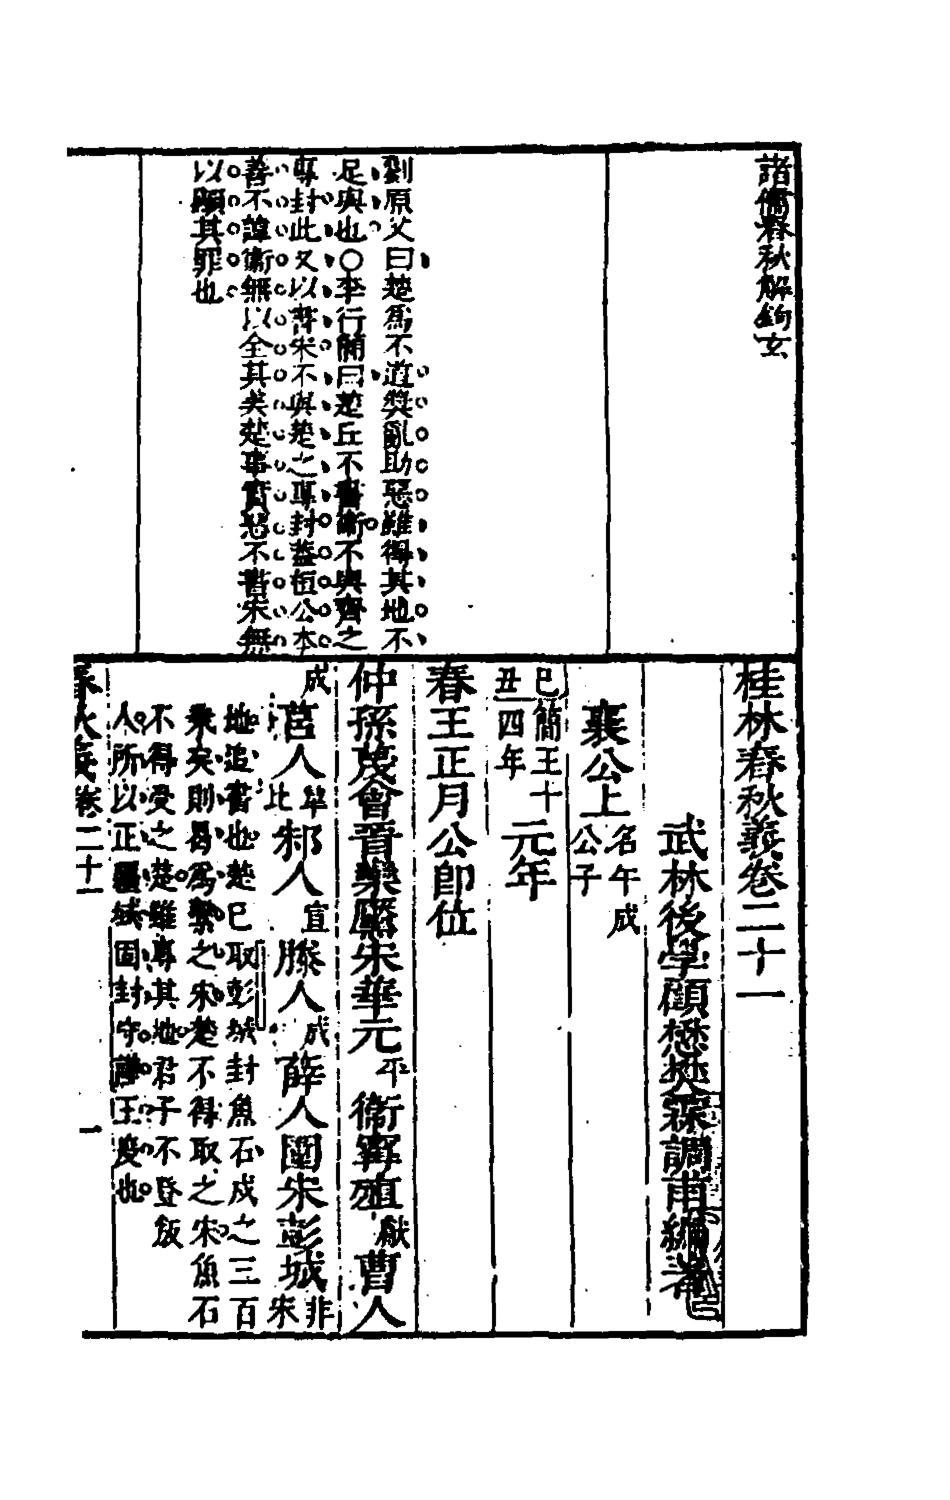 諸儒春秋解鉤玄
劉原父曰楚為不道奬亂助惡雖得其地不
足與也〇李行簡曰楚丘不書衛不與齊之
專封此又以書宋不與楚之專封蓋桓公本
善不諱衛無以全其美楚事實惡不書宋無
以顯其罪也
桂林春秋義卷二十一
武林後學顧懋樊霖調甫編著
襄公上 名午成
公子
己簡王十
丑四年 元年
春王正月公即位
仲孫蔑會晉欒黶宋華元 平 衛甯殖 獻 曹人
成 莒人 犂
比 邾人 宣 滕人 成 薛人圍宋彭城 非
宋
地追書也楚已取彭城封魚石戍之三百
乘矣則曷為繫之宋楚不得取之宋魚石
不得受之楚雖專其地君子不登叛
人所以正疆域固封守謹王度也
春秋義卷二十一 一